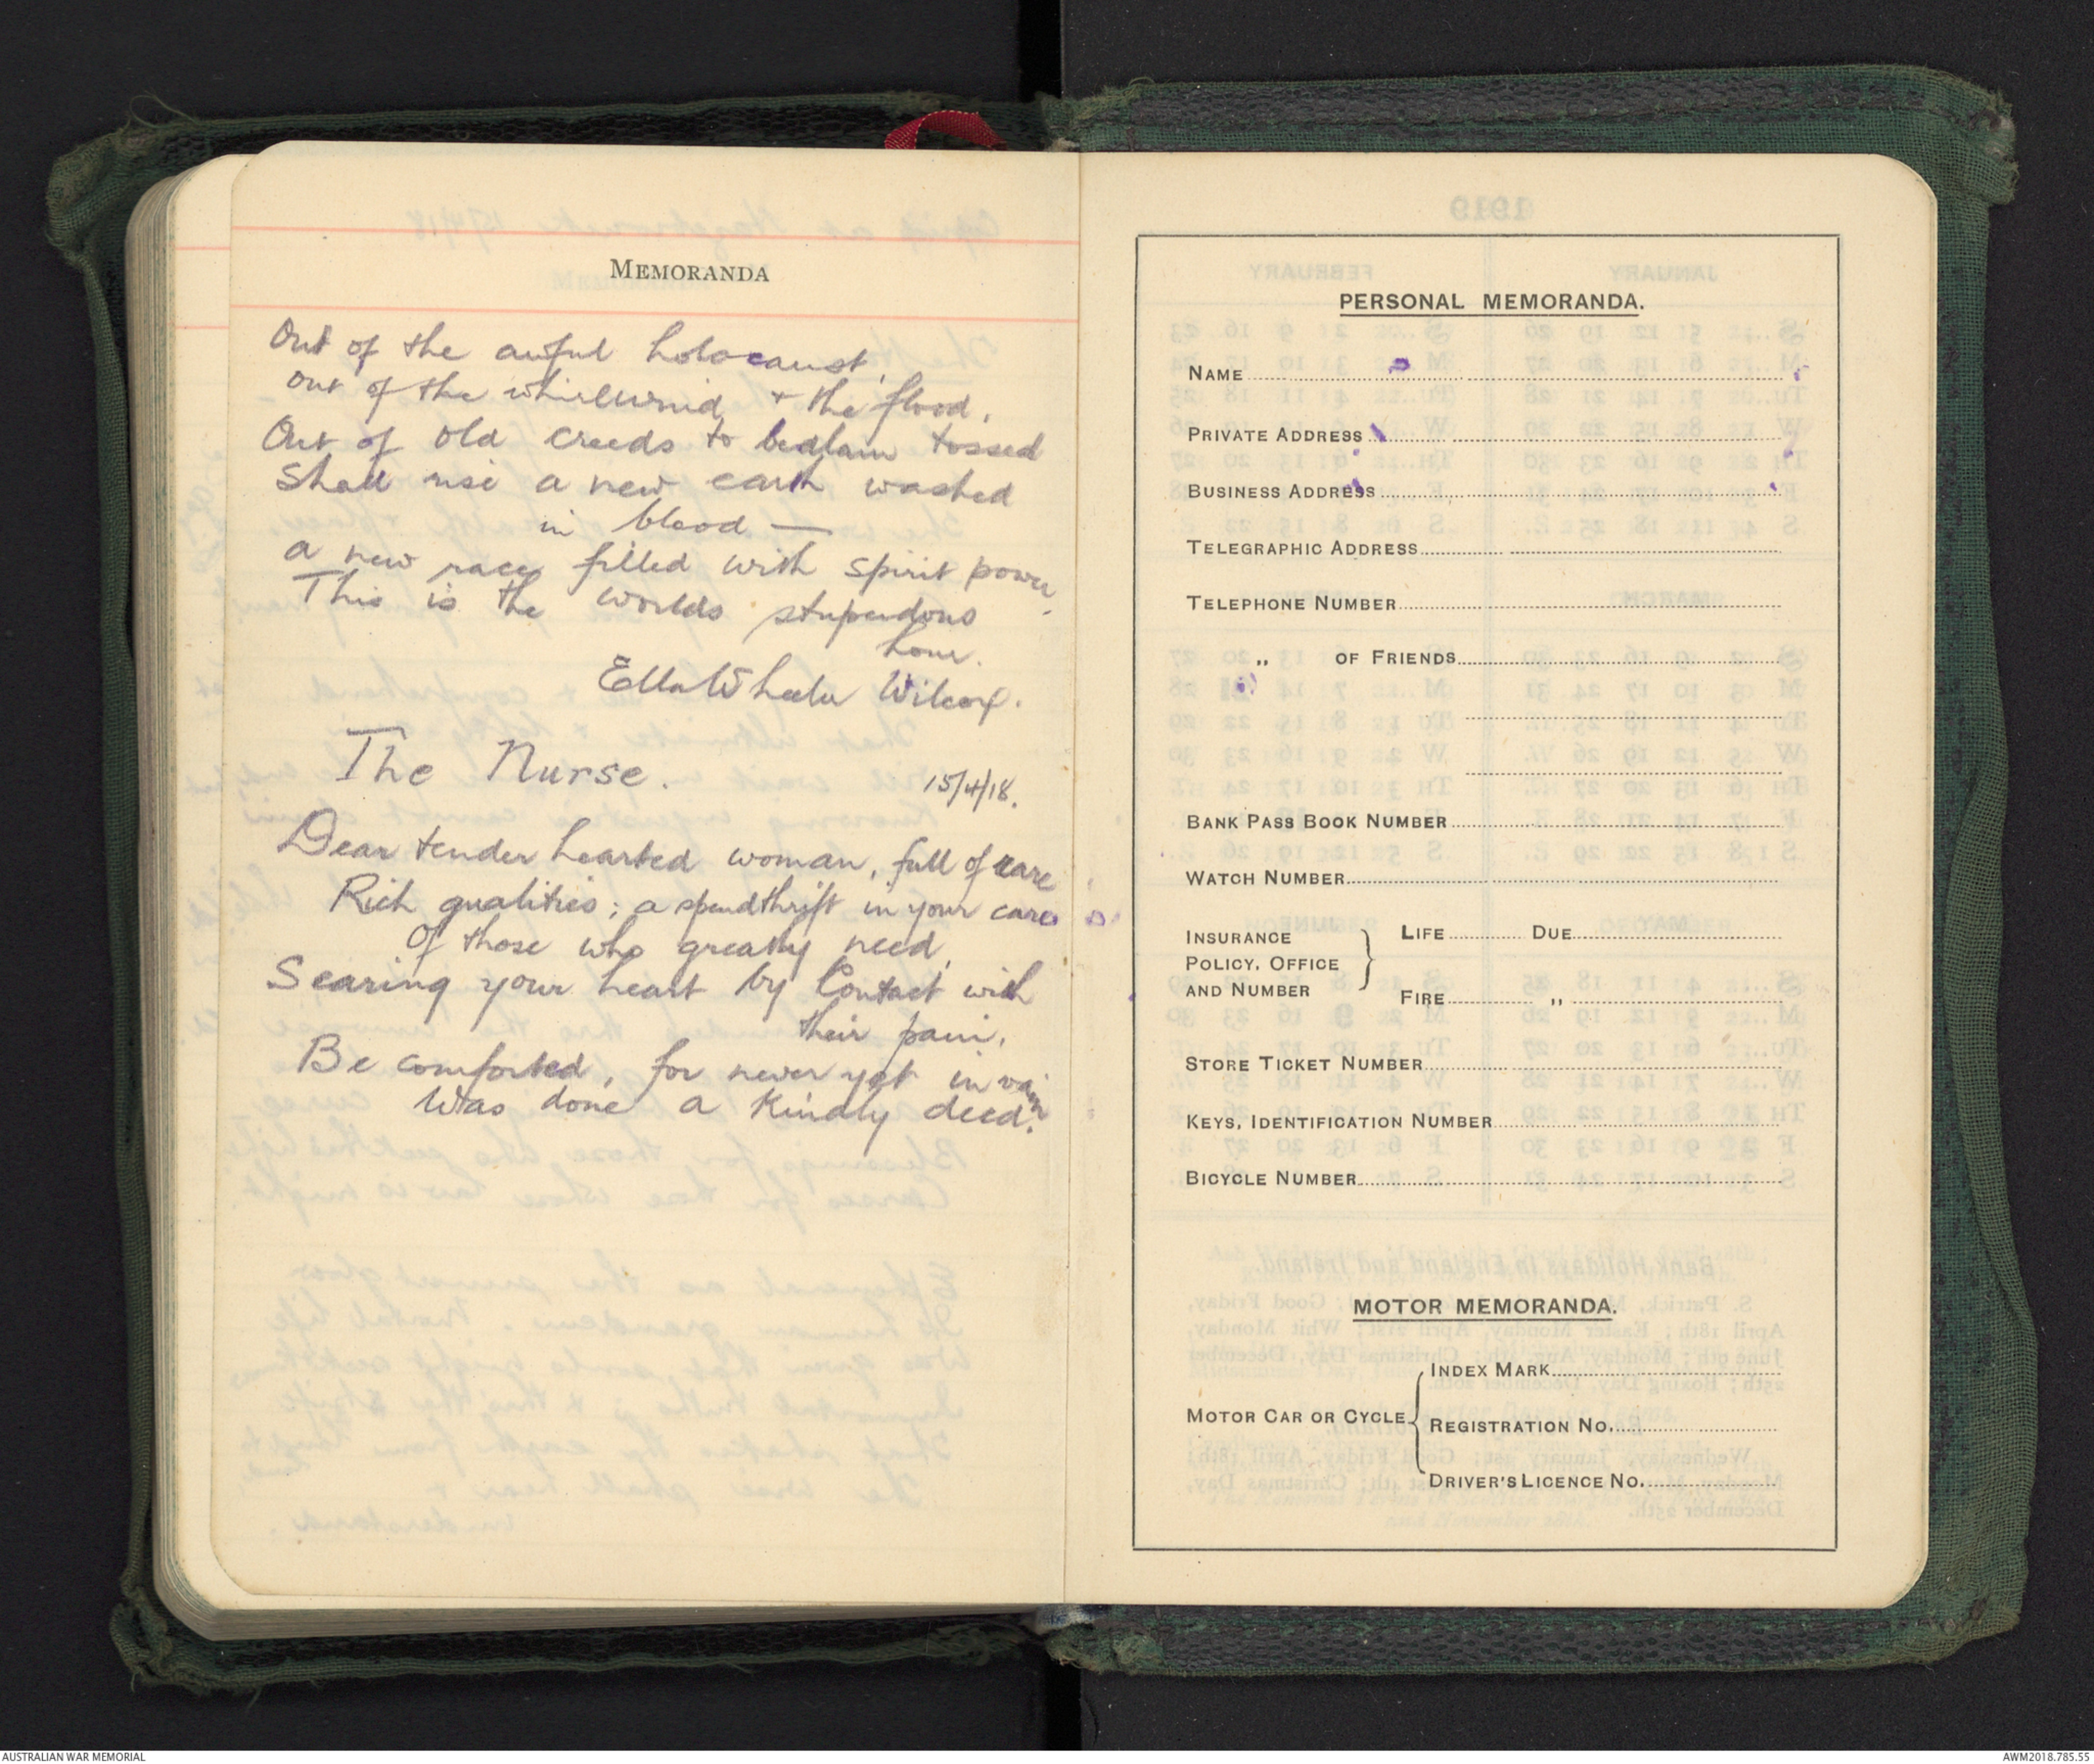 MEMORANDA
Out of the awful holocaust,
out of the whirlwind + the flood,
Out of old creeds to bedlam tossed
Shall rise a new earth washed
in blood —
a new race filled with spirit power,
This is the worlds stupendous
hour.
Ella Wheeler Wilcox.
The Nurse.
15/4/18.
Dear tender hearted woman, full of rare
Rich qualities; a spendthrift in your care
Of those who greatly need,
Searing your heart by Contact with
their pain,
Be comforted, for never yet in vain
Was done a kindly deed.
PERSONAL MEMORANDA.
NAME
PRIVATE ADDRESS
BUSINESS ADDRESS
TELEGRAPHIC ADDRESS
TELEPHONE NUMBER
„ OF FRIENDS
„
BANK PASS BOOK NUMBER
WATCH NUMBER
INSURANCE POLICY, OFFICE AND NUMBER } LIFE DUE
FIRE „
STORE TICKET NUMBER
KEYS, IDENTIFICATION NUMBER
BICYCLE NUMBER
MOTOR MEMORANDA.
MOTOR CAR OR CYCLE { INDEX MARK
REGISTRATION NO.
DRIVER'S LICENCE NO.
AUSTRALIAN WAR MEMORIAL
AWM2018.785.55